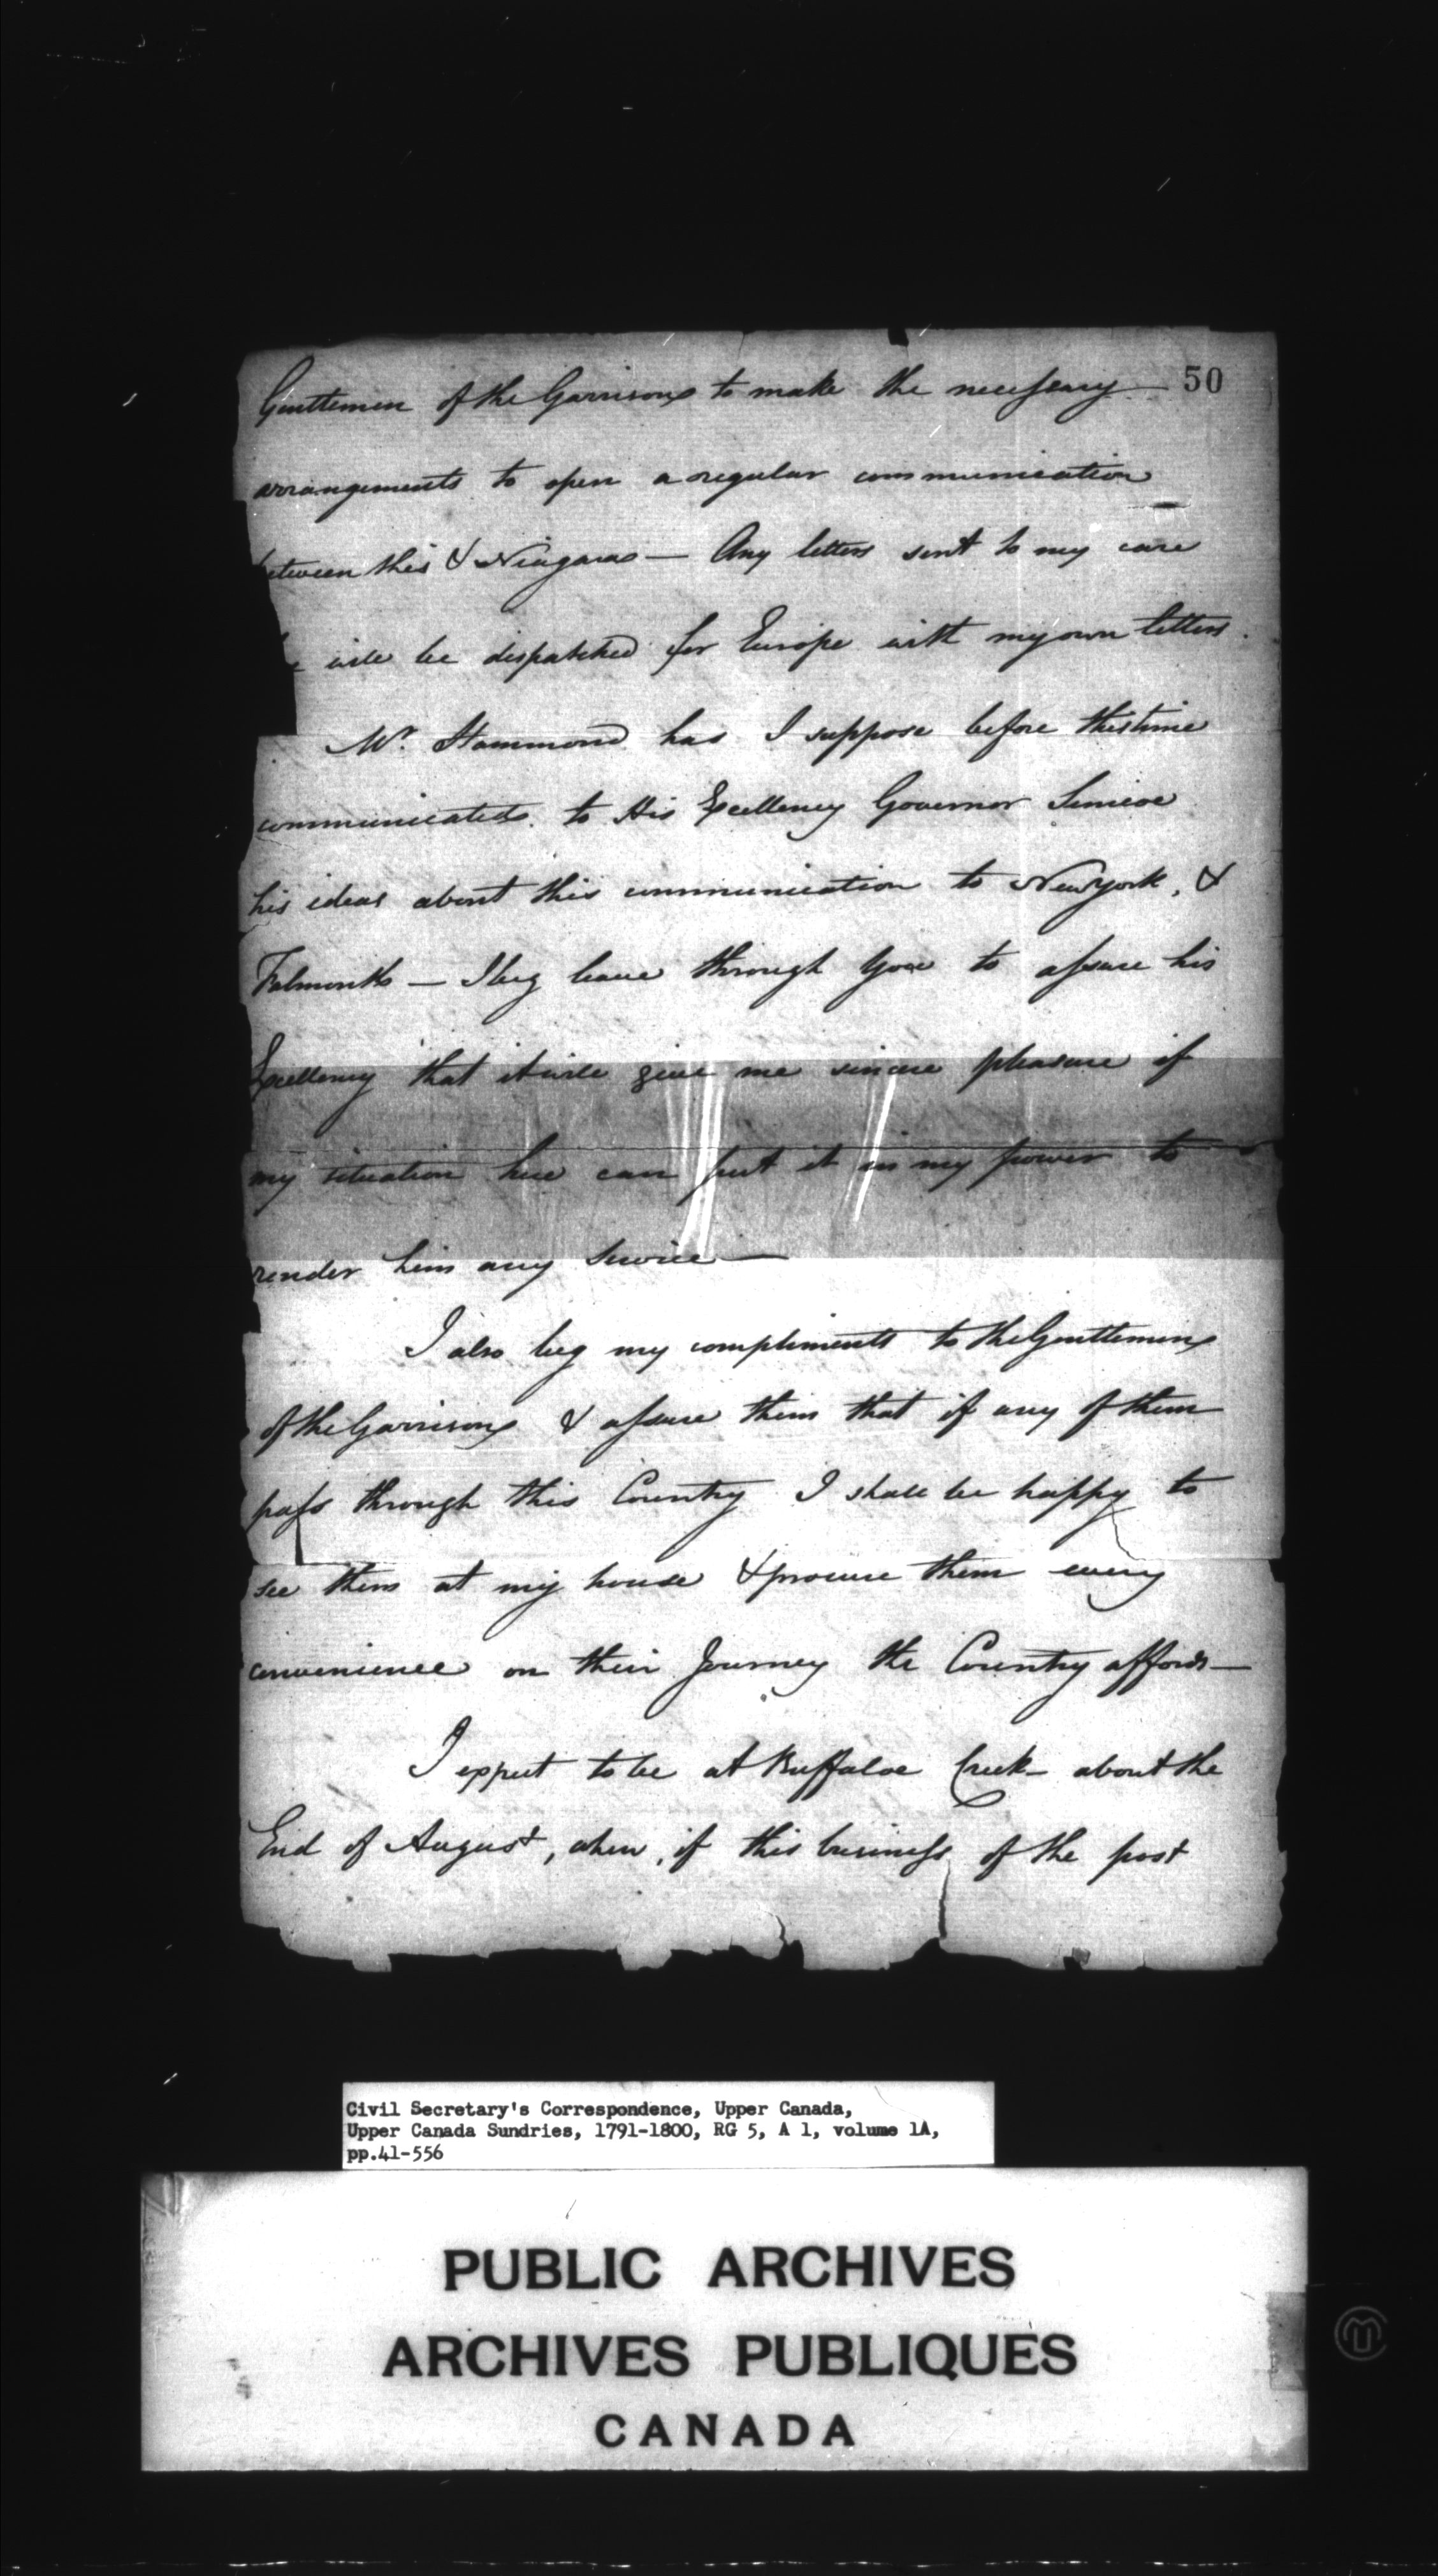 50
Gentlemen of the Garrison to make the necessary
arrangements to open a regular communication
between this & Niagara — Any letters sent to my care
will be dispatched for Europe with my own letters.
Mr. Hammond has I suppose before this time
communicated to His Excellency Governor Simcoe
his ideas about this communication to New York, &
Falmouth — I beg leave through You to assure his
Excellency that it will give me sincere pleasure if
my situation here can put it in my power to
render him any Service —
I also beg my compliments to the Gentlemen
of the Garrison & assure them that if any of them
pass through this Country I shall be happy to
see them at my house & procure them every
convenience on their Journey the Country affords —
I expect to be at Buffaloe Creek about the
End of August, when, if this business of the post
Civil Secretary's Correspondence, Upper Canada,
Upper Canada Sundries, 1791-1800, RG 5, A 1, volume 1A,
pp.41-556
PUBLIC ARCHIVES
ARCHIVES PUBLIQUES
CANADA